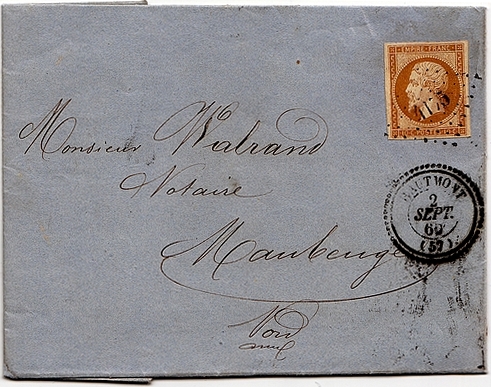 EMPIRE FRANC
10 C. POSTES 10 C.
Monsieur Walrand
Notaire
Maubeuge
Nord
HAUTMONT
2
SEPT.
60
(57)